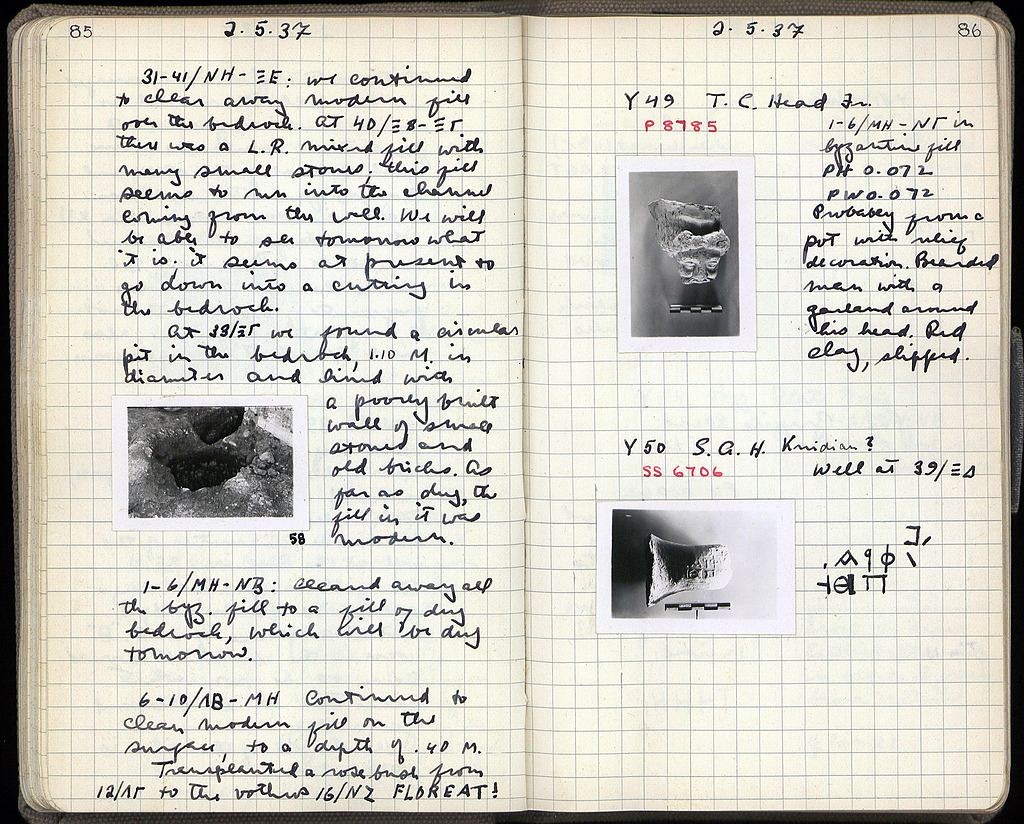 85
2.5.37
31-41/ΝΗ-ΞΕ: we continued
to clear away modern fill
over the bedrock. At 40/ΞΒ-ΞΓ
there was a L.R. mixed fill with
many small stones. This fill
seems to run into the channel
coming from the well. We will
be able to see tomorrow what
it is. it seems at present to
go down into a cutting in
the bedrock.
At 38/ΞΓ we found a circular
pit in the bedrock, 1.10 M. in
diameter and lined with
a poorly built
wall of small
stones and
old bricks. As
far as dug, the
fill in it was
modern.
58
1-6/ΜΗ-ΝΒ: cleaned away all
the byz. fill to a fill of dug
bedrock, which will be dug
tomorrow.
6-10/ΛΒ-ΜΗ Continued to
clean modern fill on the
surface, to a depth of .40 M.
Transplanted a rose bush from
12/ΛΓ to the vothros 16/ΝΖ FLOREAT!
2.5.37
86
Y 49 T. C. Head Fr.
P 8785
1-6/ΜΗ-ΝΓ in
byzantine fill
PH 0.072
PW 0.072
Probably from a
pot with relief
decoration. Bearded
man with a
garland around
his head. Red
clay, slipped.
Y 50 S. A. H. Knidian?
SS 6706
Well at 39/ΞΔ